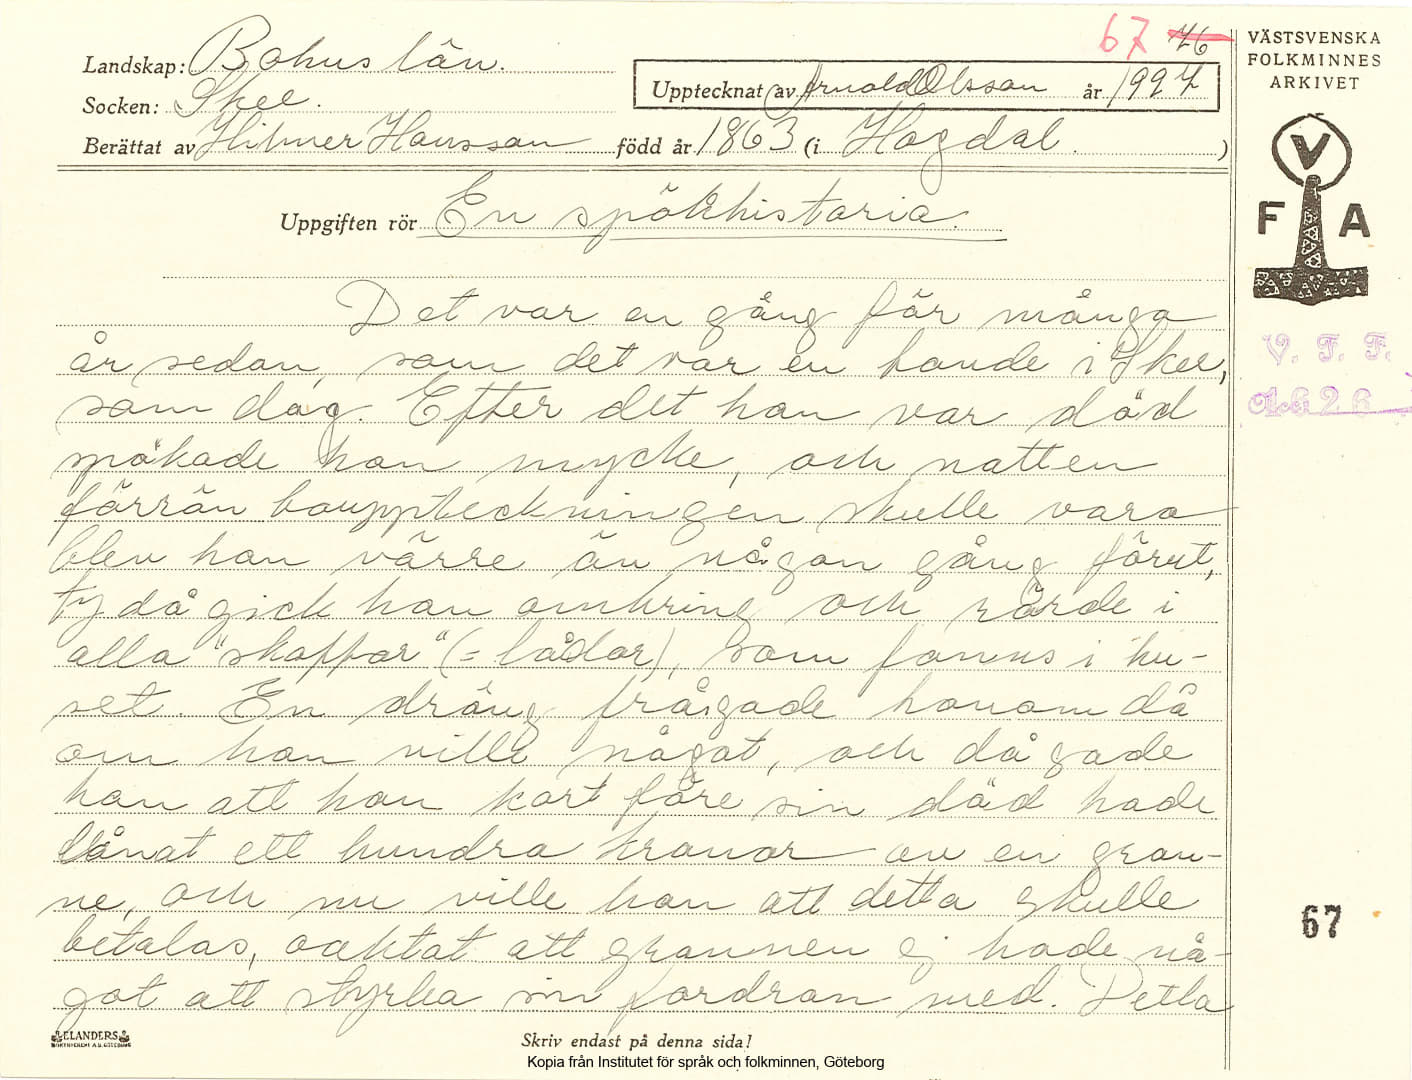 67 76
Landskap: Bohuslän.
Socken: Skee.
Upptecknat av Arnold Olsson år 1927
Berättat av Hilmer Hansson född år 1863 (i Hogdal.)
Uppgiften rör En spökhistoria.
Det var en gång för många
år sedan, som det var en bonde i Skee,
som dog. Efter det han var död
spökade han mycke, och natten
förrän bouppteckningen skulle vara
blev han värre än någon gång förut,
ty då gick han omkring och rörde i
alla "skoffor" (= lådor), som fanns i hu-
set. En dräng frågade honom då
om han ville något, och då sade
han att han kort före sin död hade
lånat ett hundra kronor av en gran-
ne, och nu ville han att detta skulle
betalas, oaktat att grannen ej hade nå-
got att styrka sin fordran med. Detta
ELANDERS
BOKTRYCKERI A.B. GÖTEBORG
Skriv endast på denna sida!
Kopia från Institutet för språk och folkminnen, Göteborg
VÄSTSVENSKA
FOLKMINNES
ARKIVET
V
F A
V. F. F.
1626
67